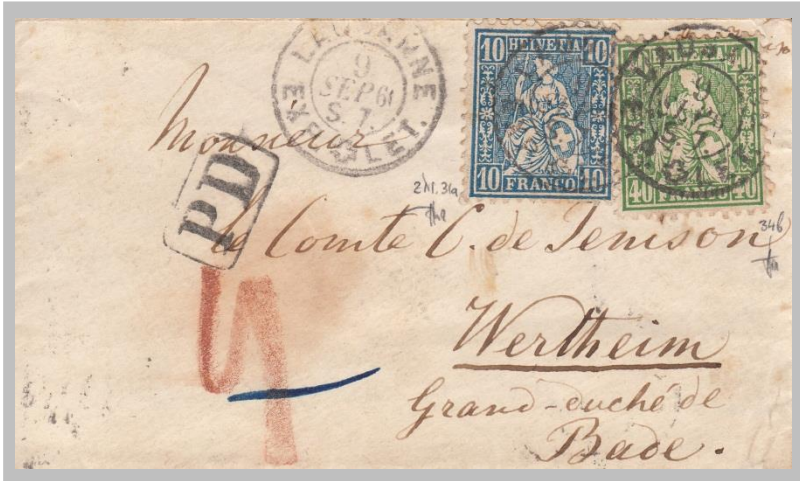 LAUSANNE
9
SEP 61
S. 7.
EXP. LET.
10 HELVETIA 10
10 FRANCO 10
40 40
40 FRANCO 40
PD
Monsieur
le Comte C. de Jenison
34b
Wertheim
Grand-duché de
Bade.